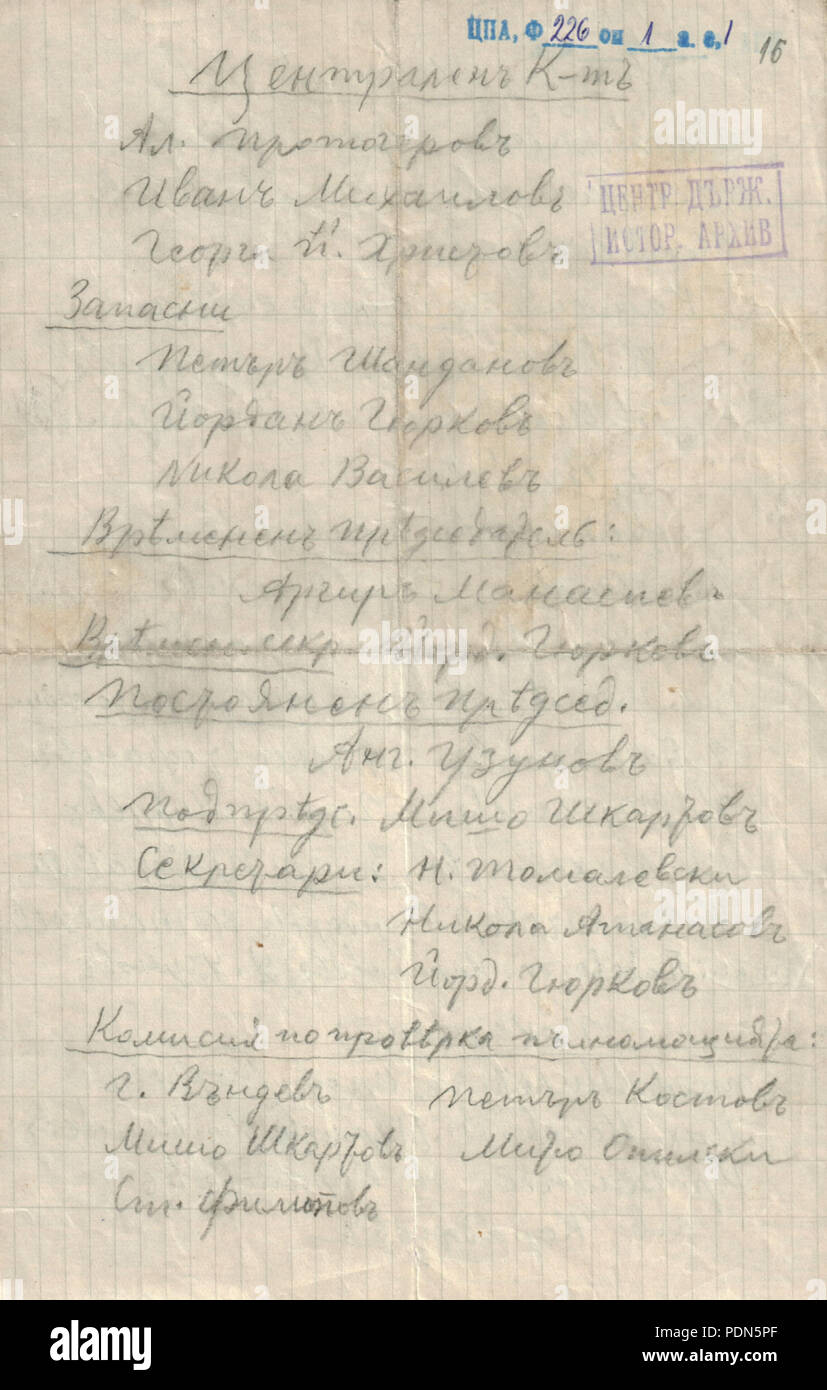 ЦПА, Ф 226 оп 1 а. е. 1
16
Централенъ К-тъ
Ал. Протогеровъ
Иванъ Михаиловъ
Георги П. Христовъ
ЦЕНТР. ДЪРЖ.
ИСТОР. АРХИВ
Запасни
Петъръ Шандановъ
Йорданъ Гюрковъ
Никола Василевъ
Врѣмененъ прѣдседатель:
Аргиръ Манасиевъ
Врѣмен. секр. Йорд. Гюрковъ
Постояненъ прѣдсед.
Анг. Узуновъ
Подпрѣдс. Мишо Шкартовъ
Секретари: Н. Томалевски
Никола Атанасовъ
Йорд. Гюрковъ
Комисия по провѣрка пълномощията:
Г. Въндевъ Петъръ Костовъ
Мишо Шкартовъ Мито Опилски
Ст. Филиповъ
alamy
alamy
alamy
a
a
a
alamy
Image ID: PDN5PF
www.alamy.com